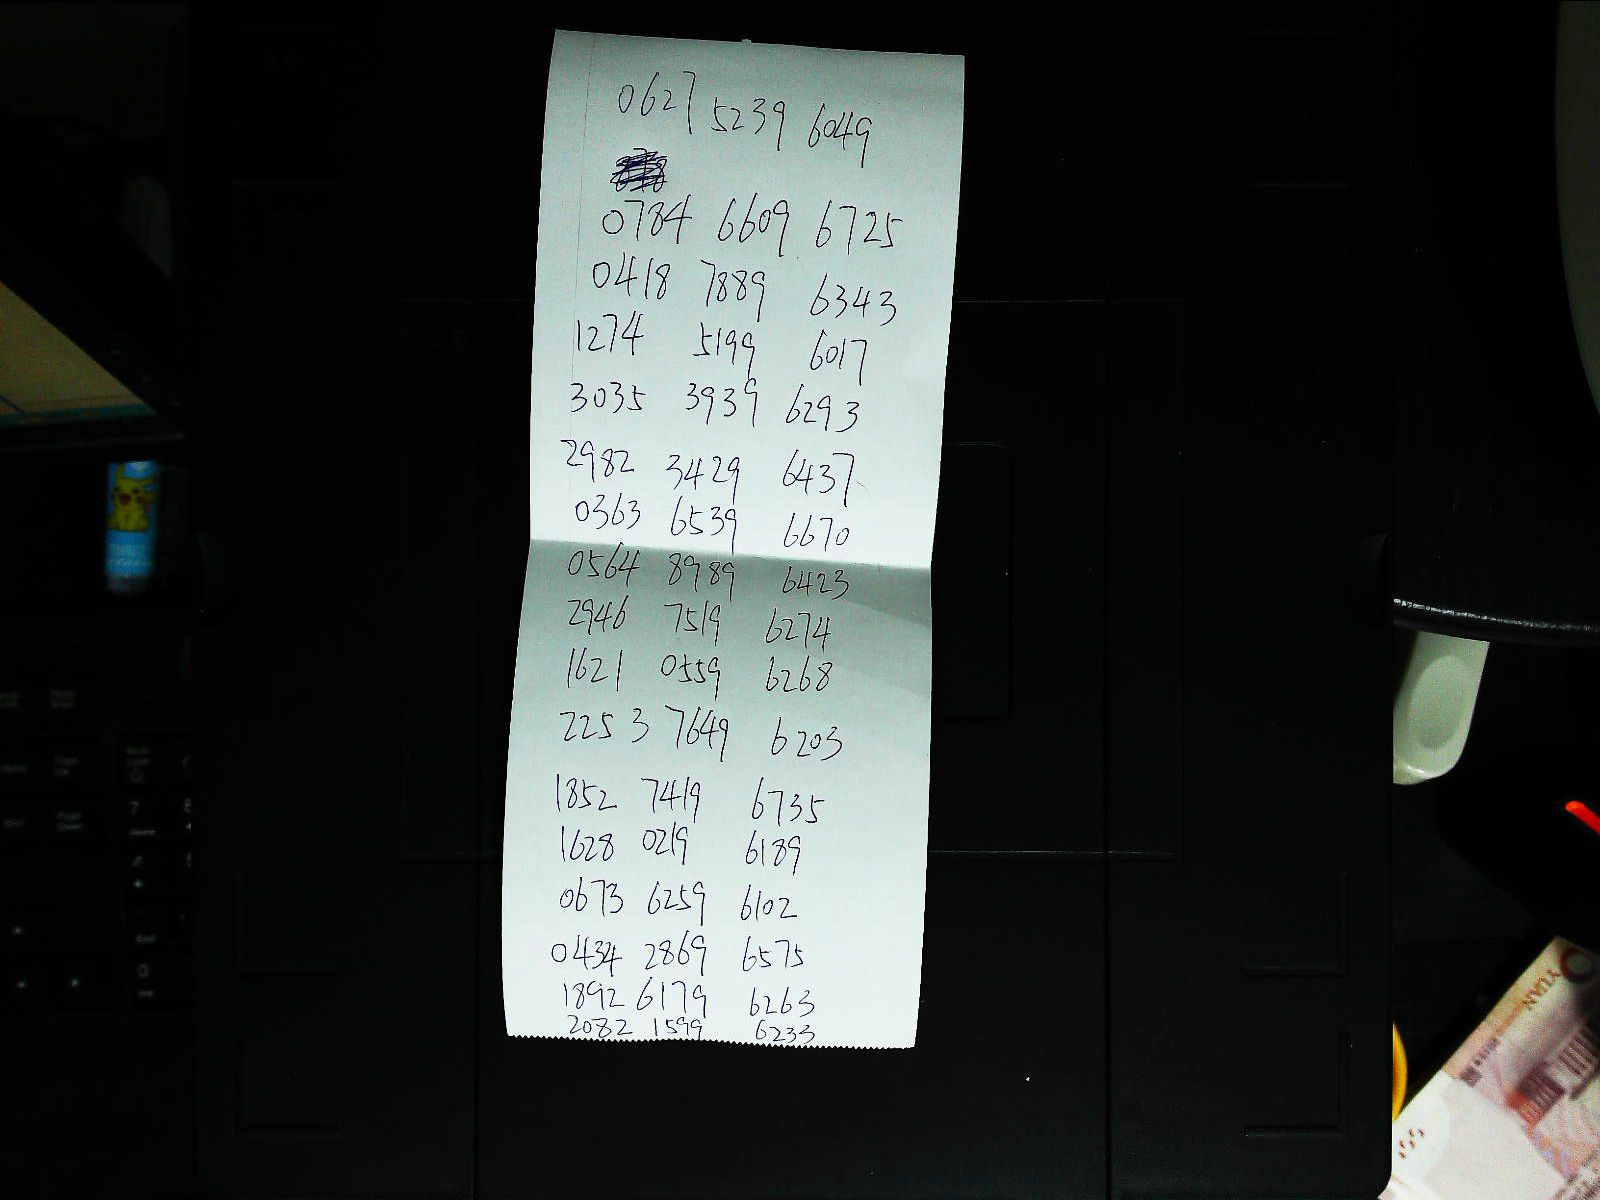 0627 5239 6049
0784 6609 6725
0418 7889 6343
1274 5199 6017
3035 3939 6293
2982 3429 6437
0363 6539 6670
0564 8989 6423
2946 7519 6274
1621 0559 6268
2253 7649 6203
1852 7419 6735
1628 0219 6189
0673 6259 6102
0434 2869 6575
1892 6179 6263
2082 1599 6233
YUAN